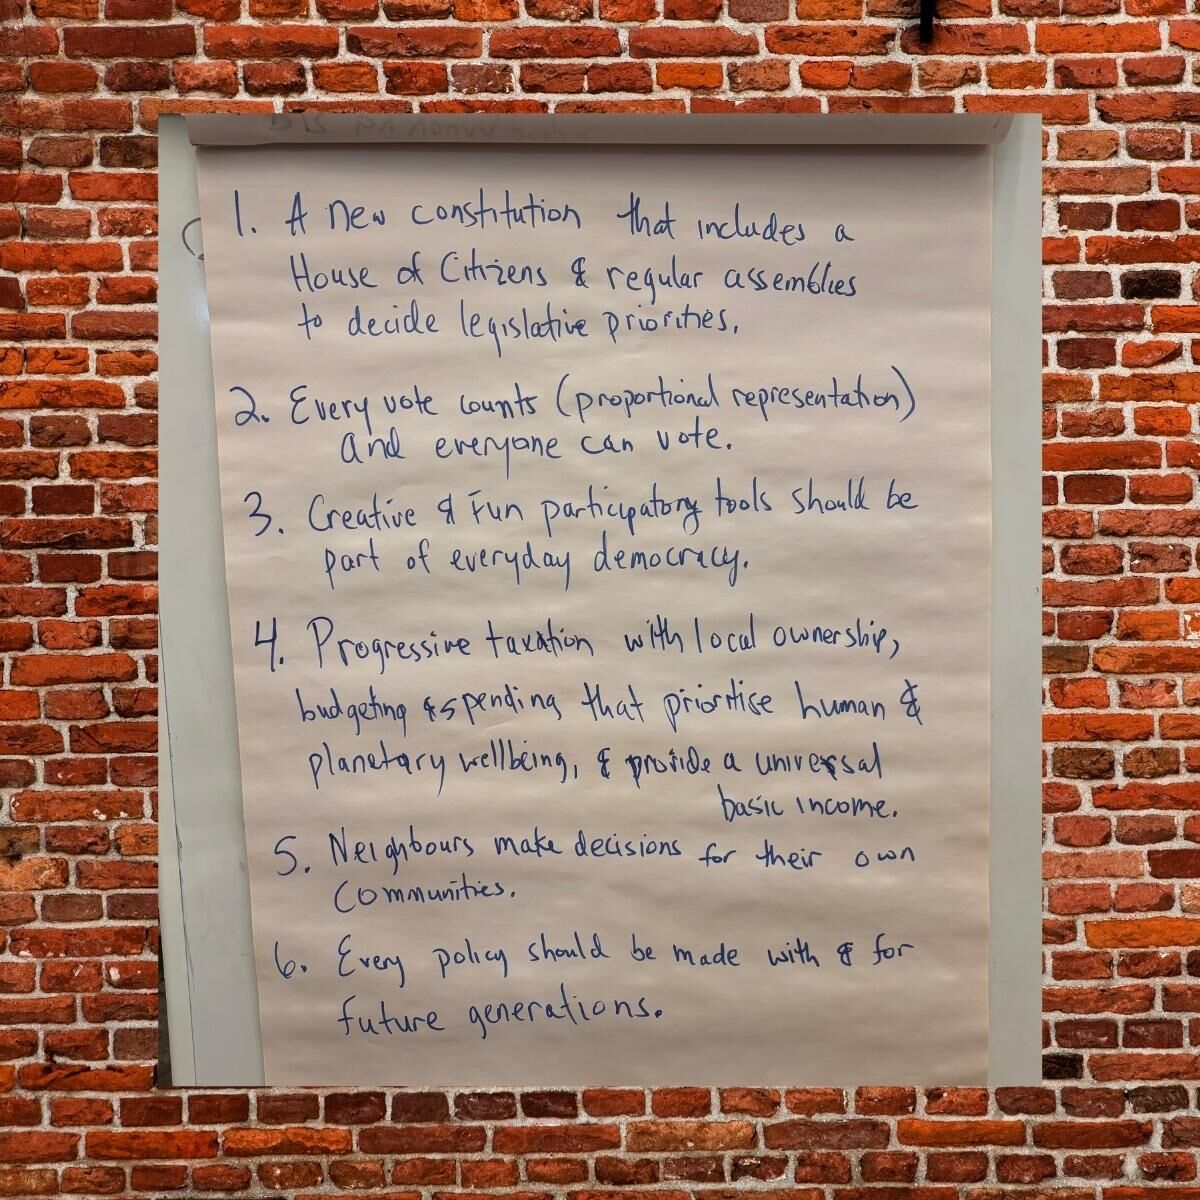 1. A new constitution that includes a
House of Citizens & regular assemblies
to decide legislative priorities.
2. Every vote counts (proportional representation)
and everyone can vote.
3. Creative & Fun participatory tools should be
part of everyday democracy.
4. Progressive taxation with local ownership,
budgeting & spending that prioritise human &
planetary wellbeing, & provide a universal
basic income.
5. Neighbours make decisions for their own
Communities.
6. Every policy should be made with & for
future generations.